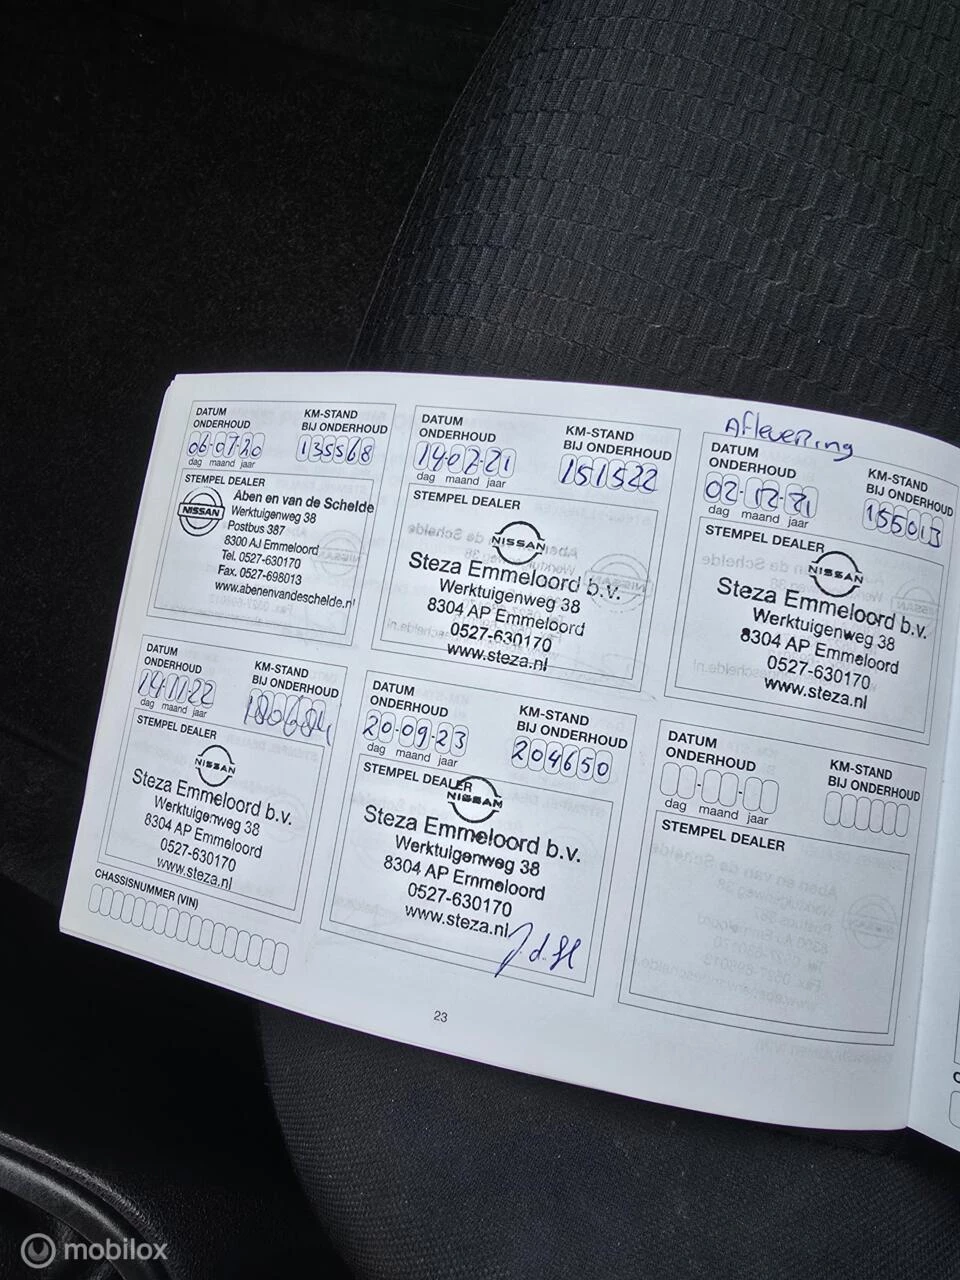 DATUM
ONDERHOUD
06-07-20
dag maand jaar
KM-STAND
BIJ ONDERHOUD
135568
STEMPEL DEALER
NISSAN
Aben en van de Schelde
Werktuigenweg 38
Postbus 387
8300 AJ Emmeloord
Tel. 0527-630170
Fax. 0527-698013
www.abenenvandeschelde.nl
DATUM
ONDERHOUD
14-07-21
dag maand jaar
KM-STAND
BIJ ONDERHOUD
151522
STEMPEL DEALER
NISSAN
Steza Emmeloord b.v.
Werktuigenweg 38
8304 AP Emmeloord
0527-630170
www.steza.nl
Aflevering
DATUM
ONDERHOUD
02-12-21
dag maand jaar
KM-STAND
BIJ ONDERHOUD
155013
STEMPEL DEALER
NISSAN
Steza Emmeloord b.v.
Werktuigenweg 38
8304 AP Emmeloord
0527-630170
www.steza.nl
DATUM
ONDERHOUD
14-11-22
dag maand jaar
KM-STAND
BIJ ONDERHOUD
180684
STEMPEL DEALER
NISSAN
Steza Emmeloord b.v.
Werktuigenweg 38
8304 AP Emmeloord
0527-630170
www.steza.nl
CHASSISNUMMER (VIN)
DATUM
ONDERHOUD
20-09-23
dag maand jaar
KM-STAND
BIJ ONDERHOUD
204650
STEMPEL DEALER
NISSAN
Steza Emmeloord b.v.
Werktuigenweg 38
8304 AP Emmeloord
0527-630170
www.steza.nl
DATUM
ONDERHOUD
dag maand jaar
KM-STAND
BIJ ONDERHOUD
STEMPEL DEALER
23
mobilox